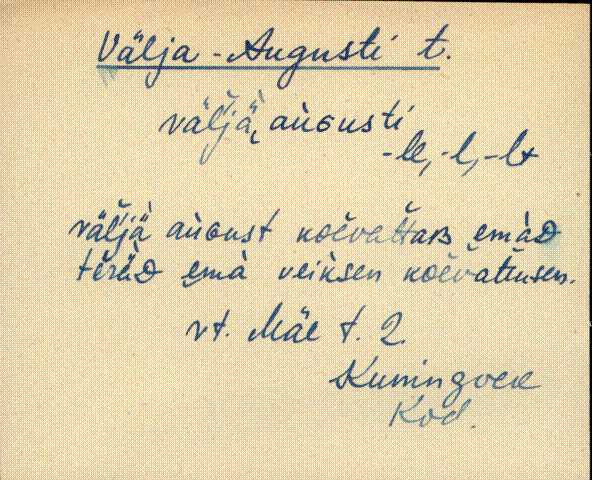 Välja-Augusti t.
väľjä, aùɢusti
-le, -l, -lt
väľjä aùɢust koèvattaʙ emàᴅ
teràᴅ emà veiksen koèvattusen.
vt. Mäe t. 2.
Kuningvere
Kod.